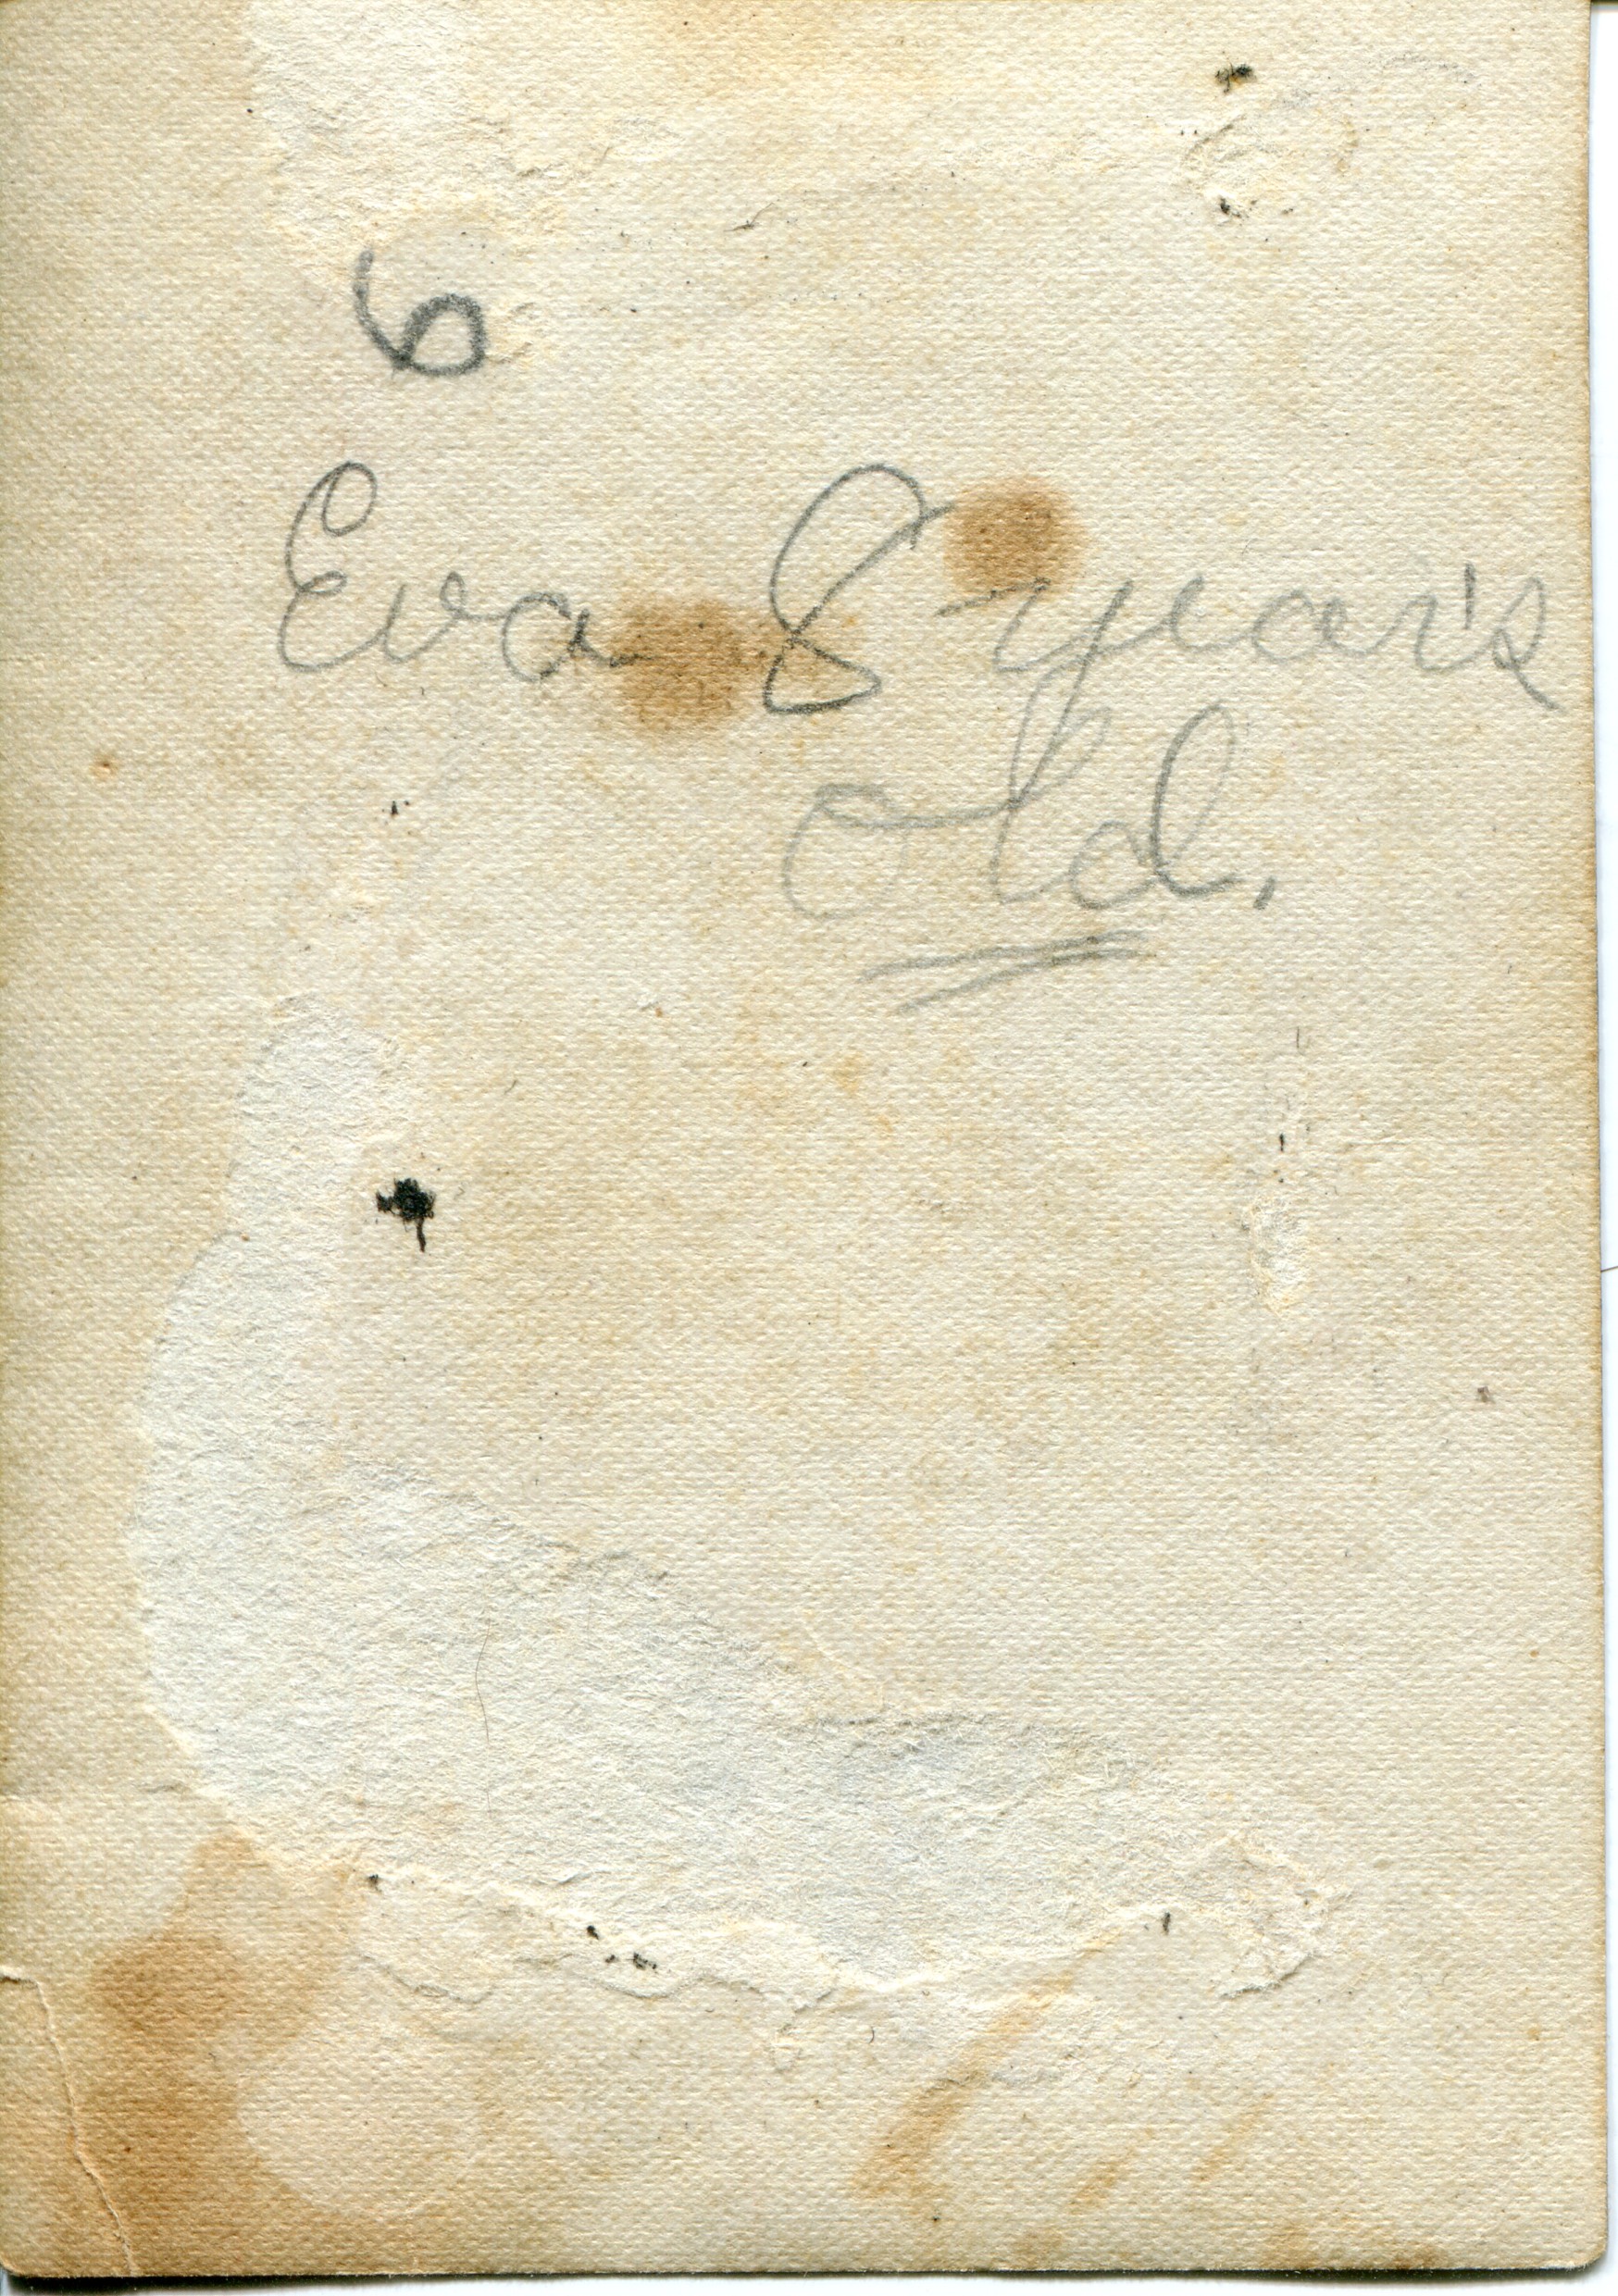 6
Eva 8 years
old.